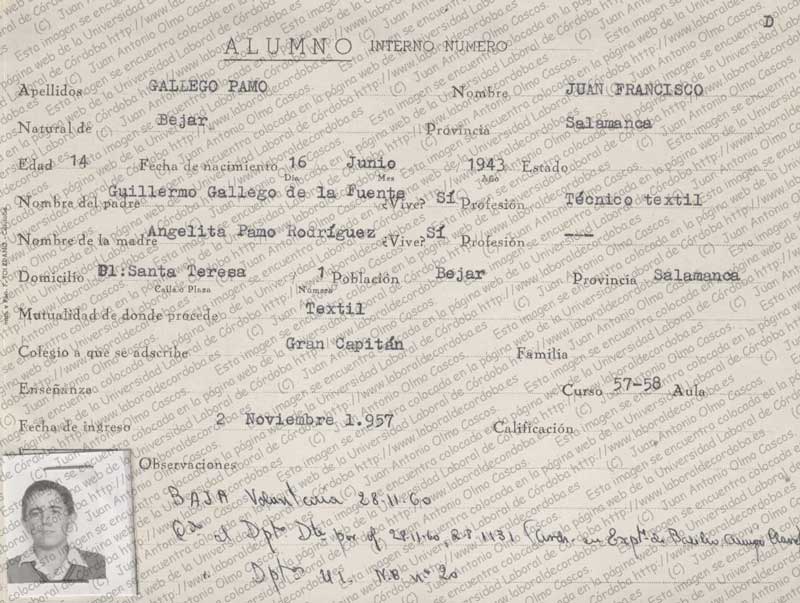 D
ALUMNO INTERNO NUMERO
Apellidos GALLEGO PAMO Nombre JUAN FRANCISCO
Natural de Bejar Provincia Salamanca
Edad 14 Fecha de nacimiento 16 Junio 1943 Estado
Día Mes Año
Nombre del padre Guillermo Gallego de la Fuente ¿Vive? Sí Profesión Técnico textil
Nombre de la madre Angelita Pamo Rodríguez ¿Vive? Sí Profesión ---
Domicilio Pl:Santa Teresa 1 Población Bejar Provincia Salamanca
Calle o Plaza Número
Mutualidad de donde procede Textil
Colegio a que se adscribe Gran Capitán Familia
Enseñanza Curso 57-58 Aula
Fecha de ingreso 2 Noviembre 1.957 Calificación
Observaciones
BAJA Voluntaria 28-11-60
al Dptº Dte por of. 28-11-60, R.S 1131 en Exptº de Basilio
Dptº UI. N.B. nº 20
(C) Juan Antonio Olmo Cascos. Esta imagen se encuentra colocada en la página web de la Universidad Laboral de Córdoba http://www.laboraldecordoba.es